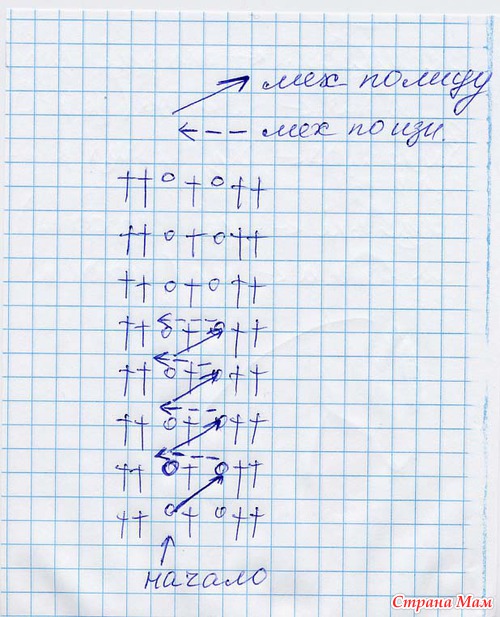 мех по лицу
мех по изн.
††о+о††
††о+о††
††о+о††
††о+о††
††о+о††
††о+о††
††о+о††
††о+о††
начало
Страна Мам